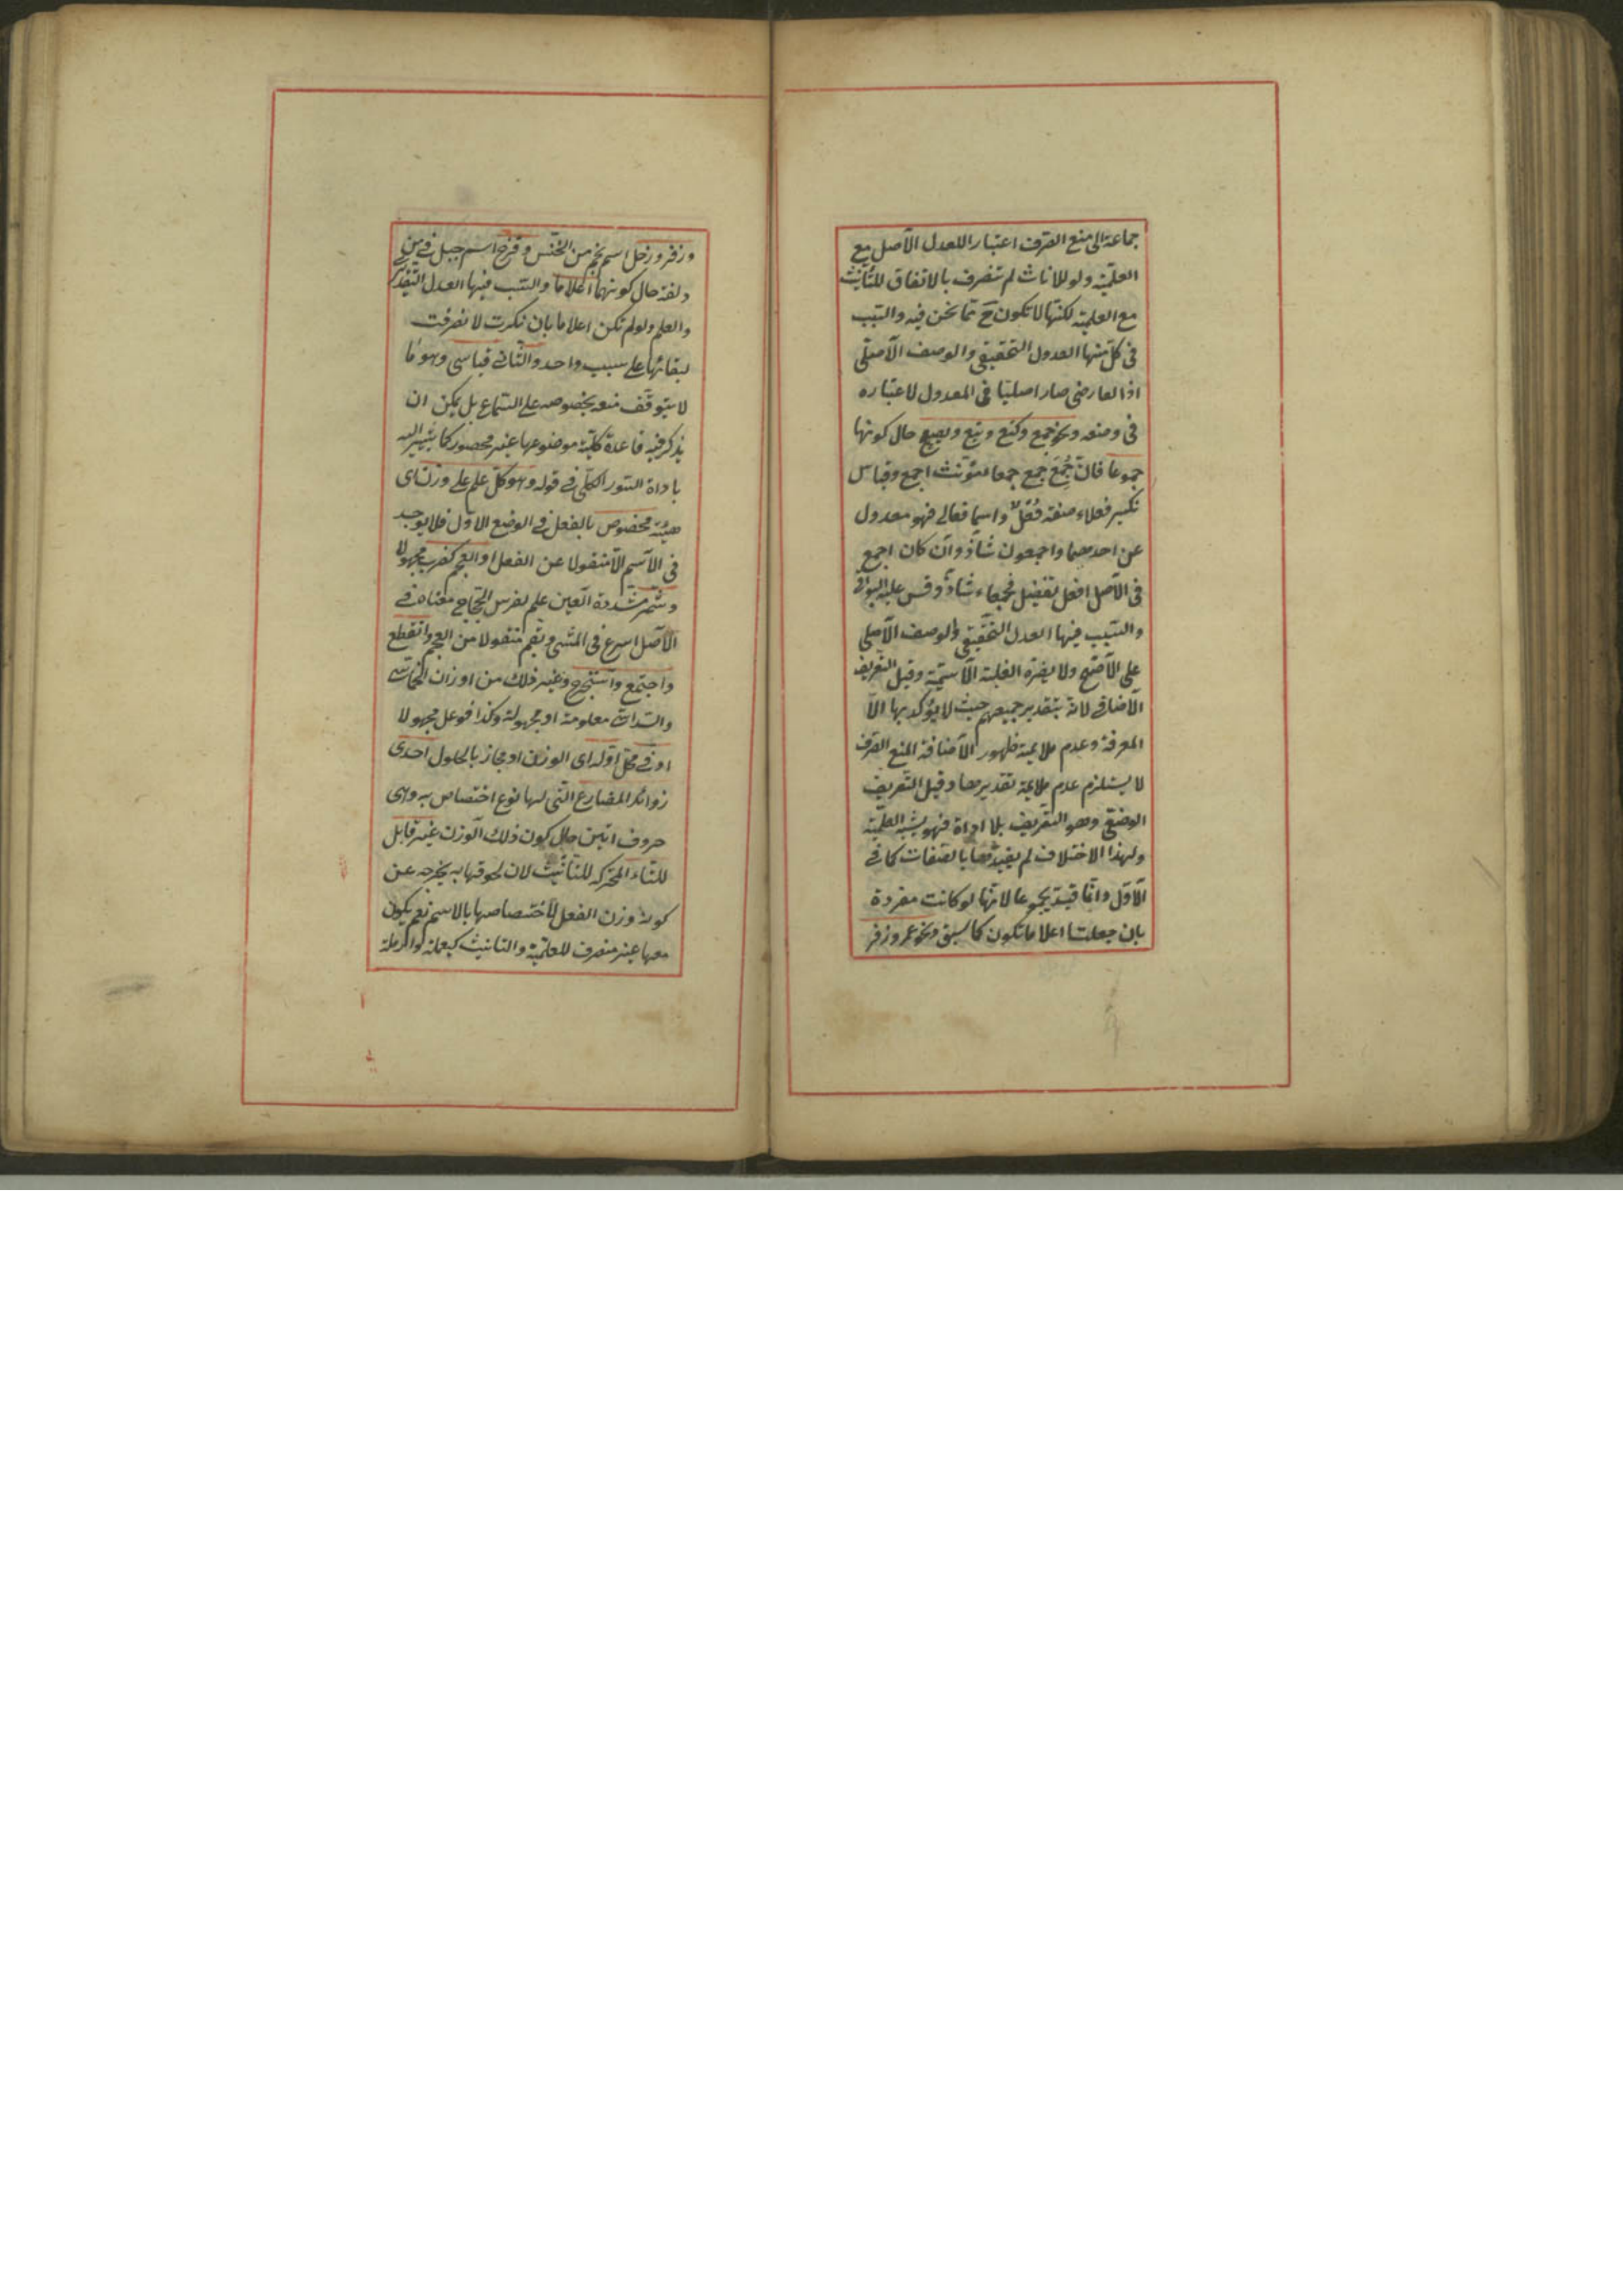 جماعة الى منع الصرف اعتبارا للعدل الاصل مع
العلمية ولو للاناث لم تنصرف بالاتفاق للتأنيث
مع العلمية لكنها لا تكون ح مما نحن فيه والسبب
فى كل منها العدول التحقيقى والوصف الاصلى
اذ العارضى صار اصليا فى المعدول لاعتباره
فى وضعه ونحو جمع وكتع وبتع وبصع حال كونها
جموعا فان جُمَعَ جمع جمعا لمؤنث اجمع وقياس
تكسير فعلاء صفة فُعْلٌ واسما فعالى فهو معدول
عن احدهما واجمعون شاذ وان كان اجمع
فى الاصل افعل تفضيل فجمعاء شاذ وقس عليه البواقى
والسبب فيها العدل التحقيقى والوصف الاصلى
على الاصح ولا يضره الغلبة الاسمية وقيل التعريف
الاضافى لانه بتقدير جميعهم حيث لا يؤكد بها الا
المعرفة وعدم ملايمة ظهور الاضافة لمنع الصرف
لا يستلزم عدم ملايمة تقديرها وقيل التعريف
الوضعى وهو التعريف بلا اداة فهو يشبه العلمية
ولهذا الاختلاف لم يقيدها بالصفات كما فى
الاول وانما قيد بجموعا لانها لو كانت مفردة
بان جعلت اعلاما تكون كما سبق ونحو عمر وزفر
وزفر وزحل اسم نجم من الخنس وقزح اسم جبل فى منى
ولغة حال كونهما اعلاما والسبب فيها العدل التقديرى
والعلم ولو لم تكن اعلاما بان نكرت لانصرفت
لبقائها على سبب واحد والثانى قياسى وهو ما
لا يتوقف منعه بخصوصه على السماع بل يمكن ان
يذكر فيه قاعدة كلية موضوعها غير محصور كما يشير اليه
باداة السور الكلى فى قوله وهو كل علم على وزن اى
هيئة مخصوص بالفعل فى الوضع الاول فلا يوجد
فى الاسم الا منقولا عن الفعل او العجم كضرب مجهولا
وشمر مشددة العين علم لفرس الحجاج معناه فى
الاصل اسرع فى المشى وبقم منقولا من العجم وانقطع
واجتمع واستخرج وغير ذلك من اوزان الخماسى
والسداسى معلومة او مجهولة وكذا فوعل مجهولا
او فى محل اوله اى الوزن او مجاز بالحلول احدى
زوائد المضارع التى لها نوع اختصاص به وهى
حروف اتين حال كون ذلك الوزن غير قابل
للتاء المتحركة للتأنيث لان لحوقها به يخرجه عن
كونه وزن الفعل لاختصاصها بالاسم نعم يكون
معها غير منصرف للعلمية والتانيث كيعملة وارملة